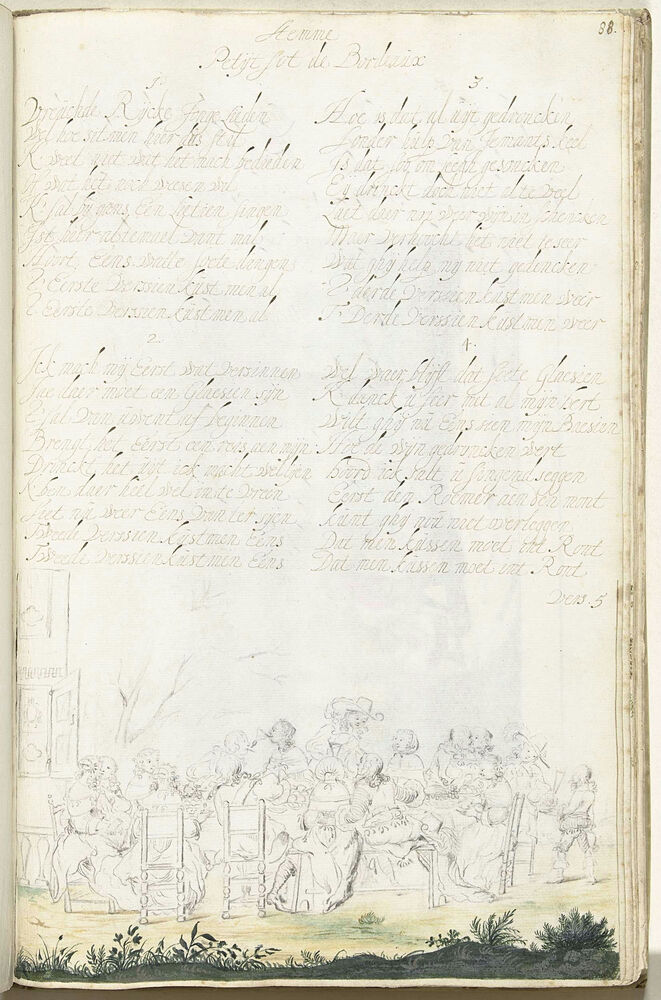 88.
Stemme
Petijt sot de Bordeaux
1.
Vreuchde Rijcke Jonge lieden
Wel hoe sit men hier dus stil
K weet niet wat het mach bedieden
of wat het noch wesen wil
K sal bij gons Een lietien singen
Ist hier altemael want mal
Hoort Eens soete dingen
T Eerste Verssien kust men al
T Eerste Verssien kust men al
2.
Ick mach mij Eerst wat versinnen
Jae daer moet een Glaesien sijn
T sal van beginnen
Brengt het Eerst een reis aen mijn
Drinckt het uijt ick macht wel lijen
K ben daer heel wel in de vreen
siet nu weer Eens van ter sijen
Tweede Verssien kust men Eens
Tweede Verssien kust men Eens
3.
Hoe is dat al uijt gedroncken
Sonder hulp van Jemants keel
Is dat soo om geschoncken
Eij drinckt doch niet al te veel
Laet daer nu weer wijn in schencken
Maer verkracht het niet te seer
Wat ghij help mij niet gedencken
T derde Verssien kust men weer
T Derde Verssien kust men weer
4.
Wel waer blijft dat soete Glaesien
K danck u seer met al mijn hert
Wilt ghij nu Eins sien mijn Baesien
Hoe de wijn gedroncken wert
hoord ick salt u singend seggen
Eerst den Roemer aen den mont
kunt ghij nou niet werleggen
Dat men kussen moet int Ront
Dat men kussen moet int Ront
Vers. 5